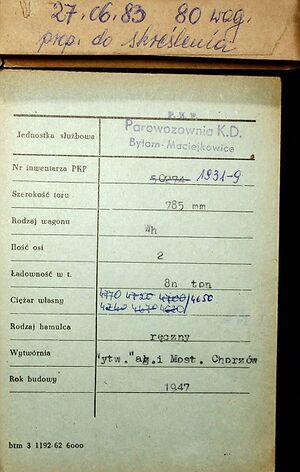 27.06.83 80 wag.
prop. do skreślenia
P.K.P.
Jednostka służbowa Parowozownia K.D.
Bytom-Maciejkowice
Nr inwentarza PKP 50274 1931-9
Szerokość toru 785 mm
Rodzaj wagonu Wh
Ilość osi 2
Ładowność w t. 8h ton
Ciężar własny 4770 4720 4700 4650
4240 4670 4620
Rodzaj hamulca ręczny
Wytwórnia "ytw."ag.i Most. Chorzów
Rok budowy 1947
btm 3 1192-62 6000